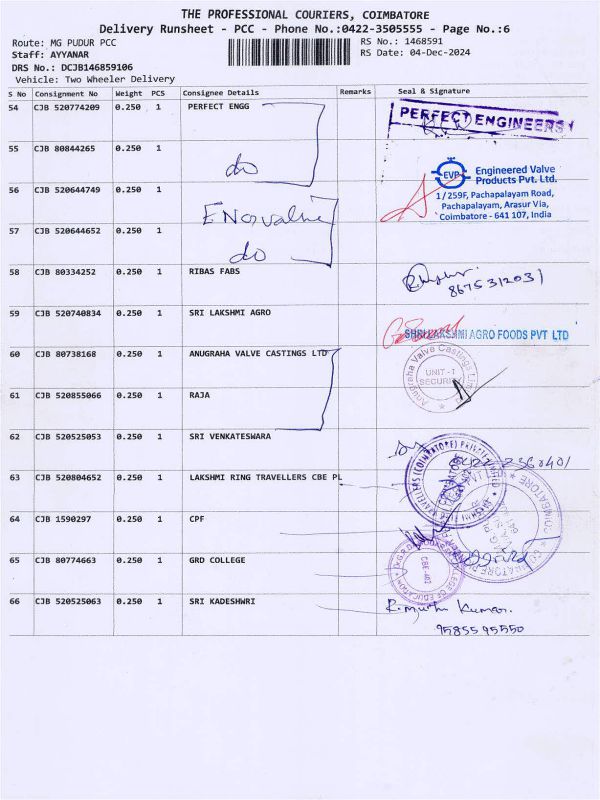 THE PROFESSIONAL COURIERS, COIMBATORE
Delivery Runsheet - PCC - Phone No.:0422-3505555 - Page No.:6
Route: MG PUDUR PCC
RS No.: 1468591
Staff: AYYANAR
RS Date: 04-Dec-2024
DRS No.: DCJB146859106
Vehicle: Two Wheeler Delivery
S No Consignment No Weight PCS Consignee Details Remarks Seal & Signature
54 CJB 520774209 0.250 1 PERFECT ENGG
PERFECT ENGINEERS
55 CJB 80844265 0.250 1
do
EVP Engineered Valve
Products Pvt. Ltd.
56 CJB 520644749 0.250 1
1/259F, Pachapalayam Road,
Pachapalayam, Arasur Via,
Coimbatore - 641 107, India
57 CJB 520644652 0.250 1
do
58 CJB 80334252 0.250 1 RIBAS FABS
8675312031
59 CJB 520740834 0.250 1 SRI LAKSHMI AGRO
SHRI LAKSHMI AGRO FOODS PVT LTD
60 CJB 80738168 0.250 1 ANUGRAHA VALVE CASTINGS LTD
Anugraha Valve Castings Ltd
UNIT - 1
SECURITY
61 CJB 520855066 0.250 1 RAJA
62 CJB 520525053 0.250 1 SRI VENKATESWARA
63 CJB 520804652 0.250 1 LAKSHMI RING TRAVELLERS CBE PL
TRAVELLERS (COIMBATORE) PRIVATE LIMITED
64 CJB 1590297 0.250 1 CPF
65 CJB 80774663 0.250 1 GRD COLLEGE
COLLEGE OF EDUCATION
66 CJB 520525063 0.250 1 SRI KADESHWRI
R. Muthu Kumar.
9585595550